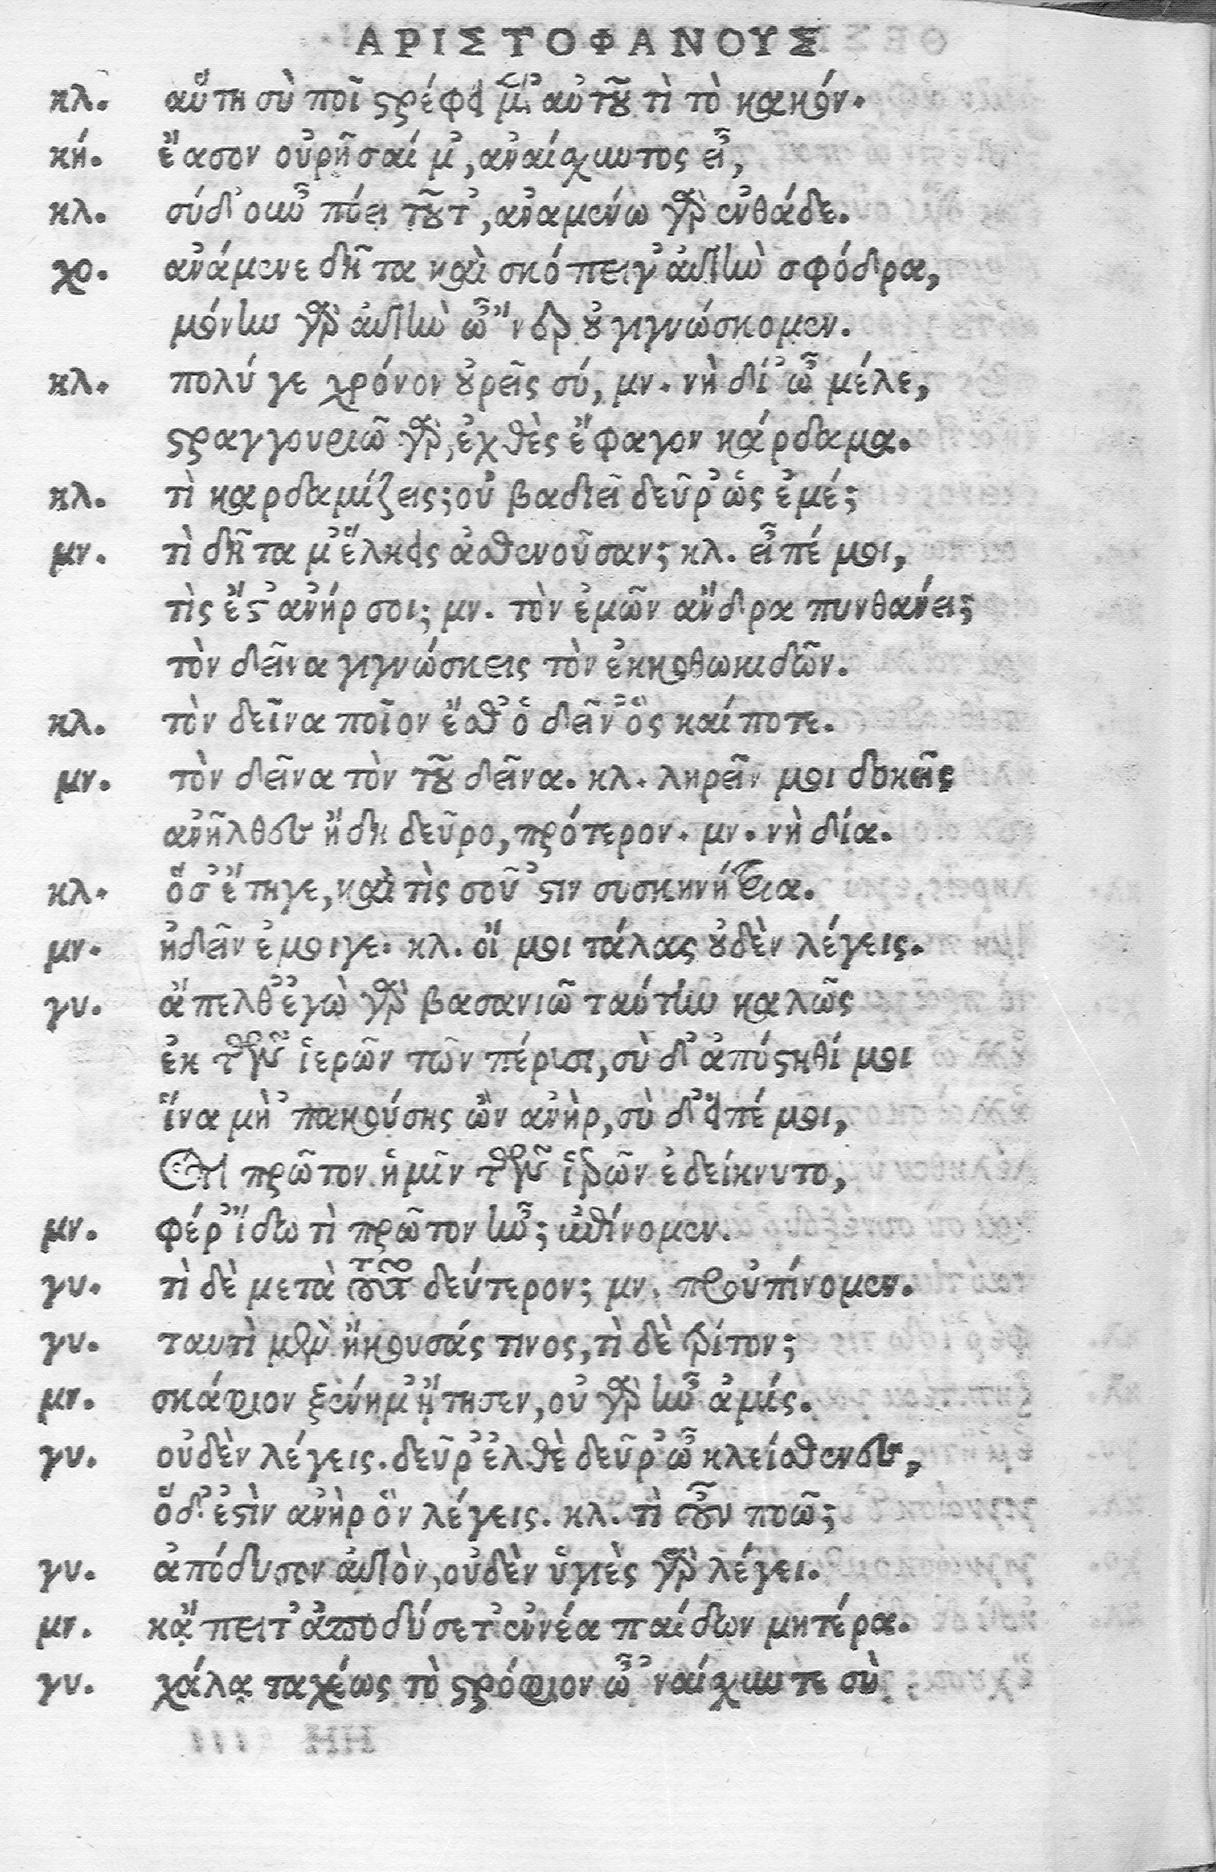 ΑΡΙΣΤΟΦΑΝΟΥΣ
κλ. αὕτη σὺ ποῖ στρέφει μέν' αὐτοῦ τὶ τὸ κακόν.
κή. ἔασον οὐρῆσαί μ', ἀναίσχυντος εἶ,
κλ. σύδ' οὖν πόει τοῦτ', ἀναμένω γὰρ ἐνθάδε.
χο. ἀνάμενε δῆτα καὶ σκόπειγ' αὐτὴν σφόδρα,
μόνην γὰρ αὐτὴν ὦ'νερ οὐ γιγνώσκομεν.
κλ. πολύ γε χρόνον οὐρεῖς σύ, μν. νὴ δί' ὦ μέλε,
στραγγουριῶ γὰρ, ἐχθὲς ἔφαγον κάρδαμα.
κλ. τὶ καρδαμίζεις; οὐ βαδιεῖ δεῦρ' ὡς ἐμέ;
μν. τὶ δῆτα μ' ἕλκεις ἀσθενοῦσαν; κλ. εἶπέ μοι,
τὶς ἔστ' ἀνήρ σοι; μν. τὸν ἐμῶν ἄνδρα πυνθάνει;
τὸν δεῖνα γιγνώσκεις τὸν ἐκκοθωκιδῶν.
κλ. τὸν δεῖνα ποῖον ἔσθ' ὁ δεῖν' ὃς καίποτε.
μν. τὸν δεῖνα τὸν τοῦ δεῖνα. κλ. ληρεῖν μοι δοκεῖς
ἀνῆλθες ἤδη δεῦρο, πρότερον. μν. νὴ δία.
κλ. ὅσ' ἔτηγε, καὶ τὶς σοῦ 'στιν συσκηνήτρια.
μν. ἡδεῖν ἐμοιγε. κλ. οἴ μοι τάλας οὐδὲν λέγεις.
γυ. ἄπελθ' ἐγὼ γὰρ βασανιῶ ταύτην καλῶς
ἐκ τῶν ἱερῶν τῶν πέρισι, σὺ δ' ἀπόστηθί μοι
ἵνα μὴ 'πακούσης ὢν ἀνὴρ, σὺ δ' εἰπέ μοι,
Ὅτι πρῶτον ἡμῖν τῶν ἱερῶν ἐδείκνυτο,
μν. φέρ' ἴδω τὶ πρῶτον ἦν; ἐπίνομεν.
γυ. τὶ δὲ μετὰ τοῦτο δεύτερον; μν. προὐπίνομεν.
γυ. ταυτὶ μὲν ἤκουσάς τινος, τὶ δὲ τρίτον;
μν. σκάφιον ξένημ' ᾔτησεν, οὐ γὰρ ἦν ἀμίς.
γυ. οὐδὲν λέγεις. δεῦρ' ἐλθὲ δεῦρ' ὦ κλείσθενες,
ὅδ' ἐστὶν ἀνὴρ ὃν λέγεις. κλ. τὶ οὖν ποῶ;
γυ. ἀπόδυσον αὐτὸν, οὐδὲν ὑγιὲς γὰρ λέγει.
μν. κᾄπειτ' ἀποδύσετ' ἐννέα παίδων μητέρα.
γυ. χάλα ταχέως τὸ στρόφιον ὦ 'ναίσχυντε σὺ